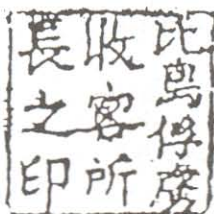 比島俘虜
收容所
長之印